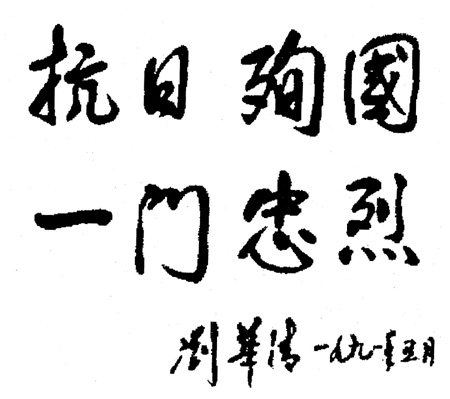 抗日殉國
一門忠烈
劉華清一九九一年五月